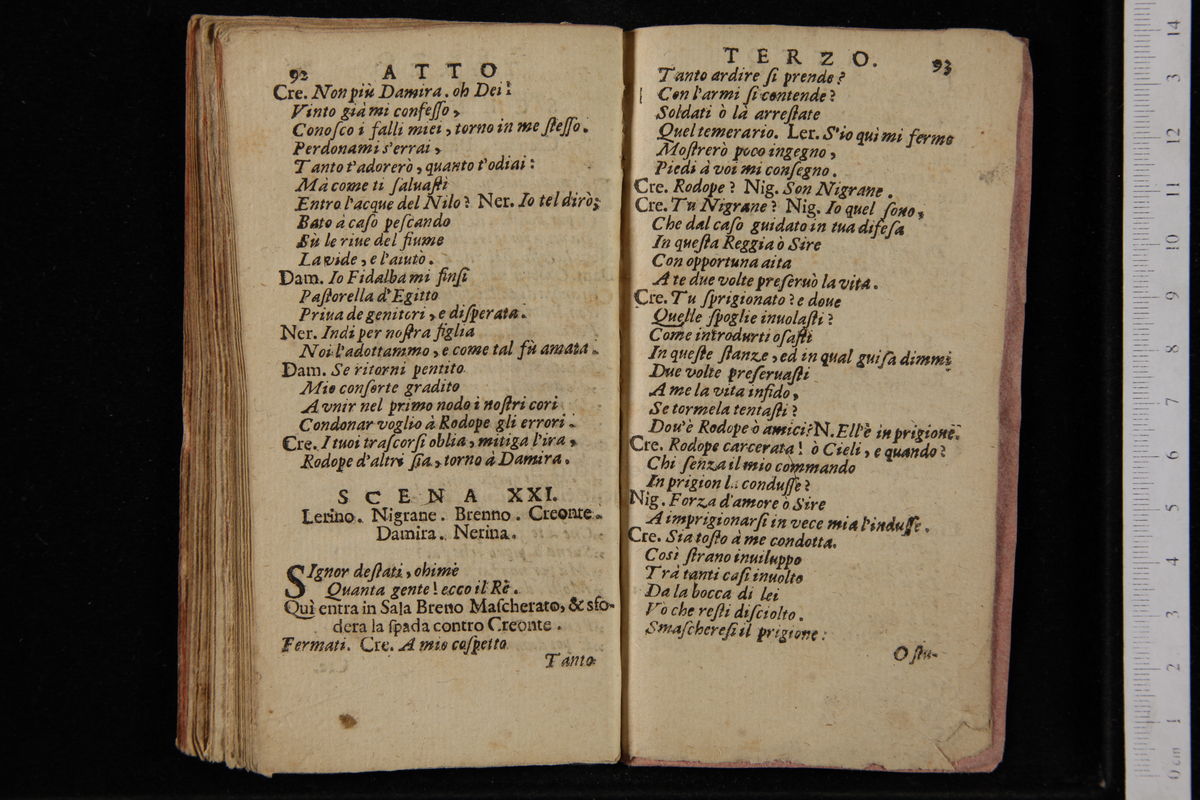 92 ATTO
Cre. Non più Damira. oh Dei!
Vinto già mi confeſſo,
Conoſco i falli miei, torno in me ſteſſo.
Perdonami s'errai,
Tanto t'adorerò, quanto t'odiai:
Mà come ti ſaluaſti
Entro l'acque del Nilo? Ner. Io tel dirò;
Bato à caſo peſcando
Sù le riue del fiume
La vide, e l'aiutò.
Dam. Io Fidalba mi finſi
Paſtorella d'Egitto
Priua de genitori, e diſperata.
Ner. Indi per noſtra figlia
Noi l'adottammo, e come tal fù amata.
Dam. Se ritorni pentito
Mio conſorte gradito
A vnir nel primo nodo i noſtri cori
Condonar voglio à Rodope gli errori.
Cre. I tuoi traſcorſi oblia, mitiga l'ira,
Rodope d'altri ſia, torno à Damira.
SCENA XXI.
Lerino. Nigrane. Brenno. Creonte.
Damira. Nerina.
SIgnor deſtati, ohimè
Quanta gente! ecco il Rè.
Quì entra in Sala Breno Maſcherato, & sfo-
dera la ſpada contro Creonte.
Fermati. Cre. A mio coſpetto
Tanto
TERZO. 93
Tanto ardire ſi prende?
Con l'armi ſi contende?
Soldati ò là arreſtate
Quel temerario. Ler. S'io quì mi fermo
Moſtrerò poco ingegno,
Piedi à voi mi conſegno.
Cre. Rodope? Nig. Son Nigrane.
Cre. Tu Nigrane? Nig. Io quel ſono,
Che dal caſo guidato in tua difeſa
In queſta Reggia ò Sire
Con opportuna aita
A te due volte preſeruò la vita.
Cre. Tu ſprigionato? e doue
Quelle ſpoglie inuolaſti?
Come introdurti oſaſti
In queſte ſtanze, ed in qual guiſa dimmi
Due volte preſeruaſti
A me la vita infido,
Se tormela tentaſti?
Dou'è Rodope ò amici? N. Ell'è in prigione.
Cre. Rodope carcerata! ò Cieli, e quando?
Chi ſenza il mio commando
In prigion la conduſſe?
Nig. Forza d'amore ò Sire
A imprigionarſi in vece mia l'induſſe.
Cre. Sia toſto à me condotta.
Così ſtrano inuiluppo
Trà tanti caſi inuolto
Da la bocca di lei
Vo che reſti diſciolto.
Smaſchereſi il prigione:
O ſtu-
14
3
12
11
10
9
8
7
6
5
4
3
2
1
0 cm